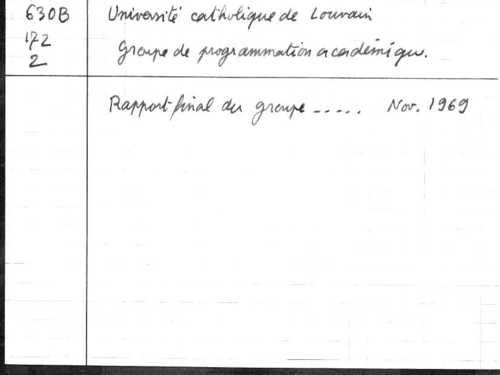 630B Université catholique de Louvain
172 Groupe de programmation académique.
2
Rapport final du groupe ..... Nov. 1969